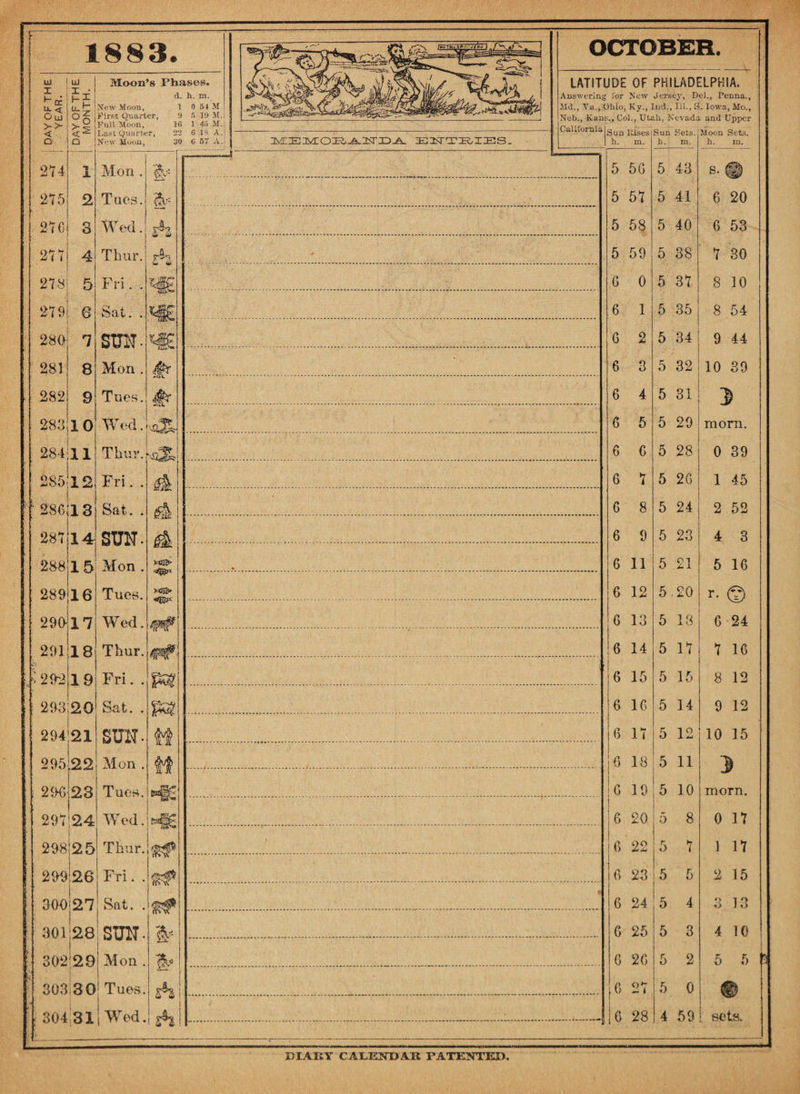 1883.
OCTOBER.
DAY OF THE YEAR.
DAY OF THE MONTH.
Moon's Phases.
d. h. m.
New Moon, 1 0 54 M
First Quarter, 9 5 19 M.
Full Moon, 16 1 45 M
Last Quarter, 22 6 18 A.
New Moon, 30 6 57 A.
MEMORANDA ENTRIES.
LATITUDE OF PHILADELPHIA.
Answering for New Jersey, Del., Penna.,
Md., Va., Ohio, Ky., Ind., Ill., S. Iowa, Mo.,
Neb., Kans., Col., Utah, Nevada and Upper
California
Sun Rises Sun Sets. Moon Sets.
h. m. h. m. h. m.
274 1 Mon . 5 56 5 43 s.
275 2 Tues. 5 57 5 41 6 20
276 3 Wed. 5 58 5 40 6 53
277 4 Thur. 5 59 5 38 7 30
278 5 Fri. . 6 0 5 37 8 10
279 6 Sat. . 6 1 5 35 8 54
280 7 SUN. 6 2 5 34 9 44
281 8 Mon . 6 3 5 32 10 39
282 9 Tues. 6 4 5 31
283 10 Wed. 6 5 5 29 morn.
284 11 Thur. 6 6 5 28 0 39
285 12 Fri. . 6 7 5 26 1 45
286 13 Sat. . 6 8 5 24 2 52
287 14 SUN. 6 9 5 23 4 3
288 15 Mon . 6 11 5 21 5 16
289 16 Tues. 6 12 5 20 r.
290 17 Wed. 6 13 5 18 6 24
291 18 Thur. 6 14 5 17 7 16
292 19 Fri. . 6 15 5 15 8 12
293 20 Sat. . 6 16 5 14 9 12
294 21 SUN. 6 17 5 12 10 15
295 22 Mon . 6 18 5 11
296 23 Tues. 6 19 5 10 morn.
297 24 Wed. 6 20 5 8 0 17
298 25 Thur. 6 22 5 7 1 17
299 26 Fri. . 6 23 5 5 2 15
300 27 Sat. . 6 24 5 4 3 13
301 28 SUN. 6 25 5 3 4 10
302 29 Mon . 6 26 5 2 5 5
303 30 Tues. 6 27 5 0
304 31 Wed. 6 28 4 59 sets.
DIARY CALENDAR PATENTED.